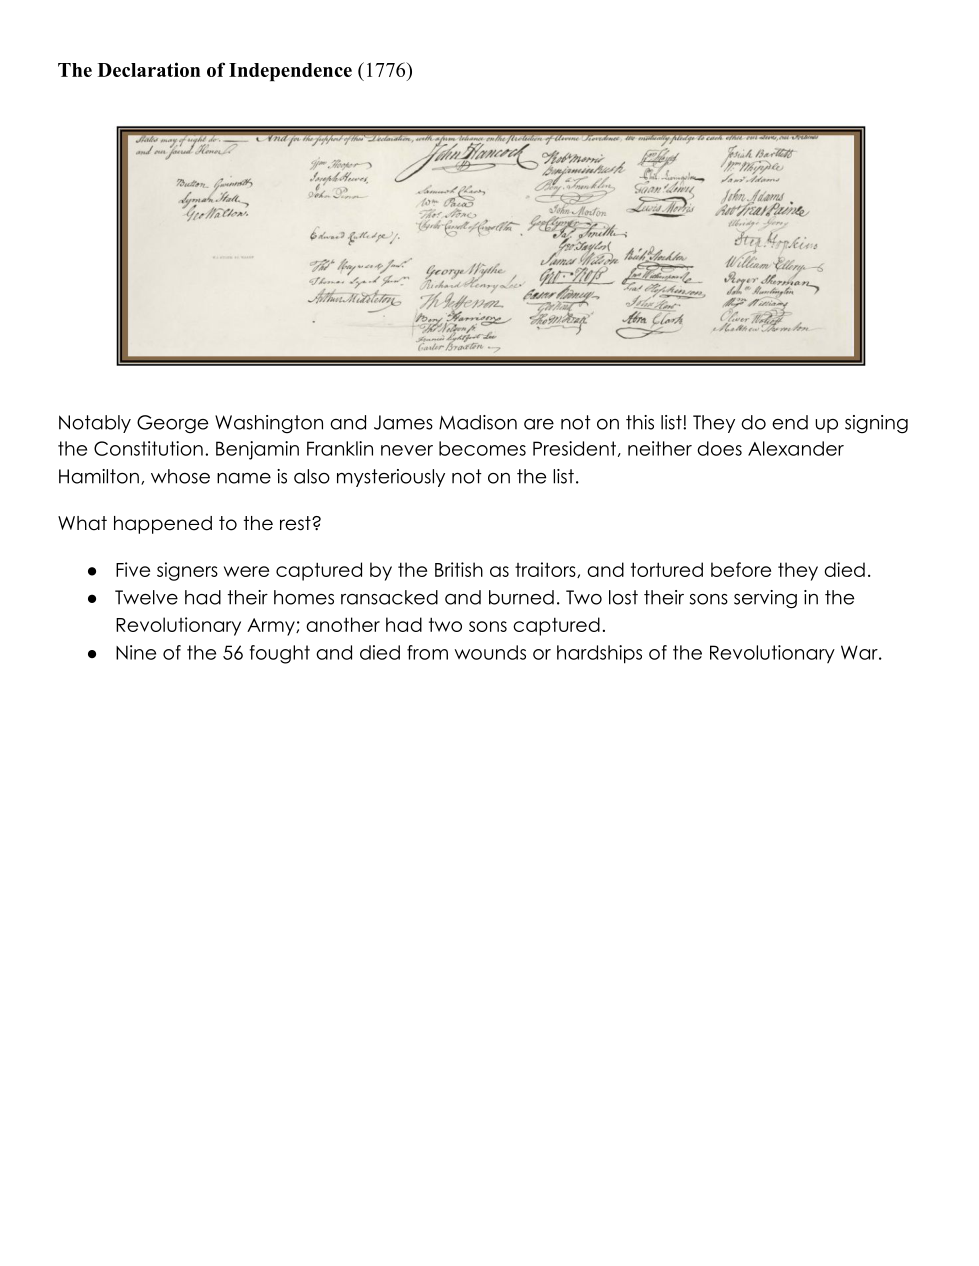 The Declaration of Independence (1776)
States may of right do. And for the support of this Declaration, with a firm reliance on the Protection of divine Providence, we mutually pledge to each other our Lives, our Fortunes
and our sacred Honor.
Button Gwinnett
Lyman Hall
Geo Walton.
Wm Hooper
Joseph Hewes,
John Penn
Edward Rutledge /.
Thos Heyward Junr.
Thomas Lynch Junr.
Arthur Middleton
John Hancock
Samuel Chase
Wm Paca
Thos. Stone
Charles Carroll of Carrollton
George Wythe
Richard Henry Lee
Th Jefferson
Benj Harrison
Thos Nelson jr.
Francis Lightfoot Lee
Carter Braxton
Robt Morris
Benjamin Rush
Benj. Franklin
John Morton
Geo Clymer
Jas. Smith
Geo. Taylor
James Wilson
Geo. Ross
Caesar Rodney
Geo Read
Tho M:Kean
Wm Floyd
Phil. Livingston
Frans. Lewis
Lewis Morris
Richd. Stockton
Jno Witherspoon
Fras. Hopkinson
John Hart
Abra Clark
Josiah Bartlett
Wm Whipple
Saml Adams
John Adams
Robt Treat Paine
Elbridge Gerry
Step. Hopkins
William Ellery
Roger Sherman
Sam. Huntington
Wm Williams
Oliver Wolcott
Matthew Thornton
Notably George Washington and James Madison are not on this list! They do end up signing
the Constitution. Benjamin Franklin never becomes President, neither does Alexander
Hamilton, whose name is also mysteriously not on the list.
What happened to the rest?
● Five signers were captured by the British as traitors, and tortured before they died.
● Twelve had their homes ransacked and burned. Two lost their sons serving in the
Revolutionary Army; another had two sons captured.
● Nine of the 56 fought and died from wounds or hardships of the Revolutionary War.